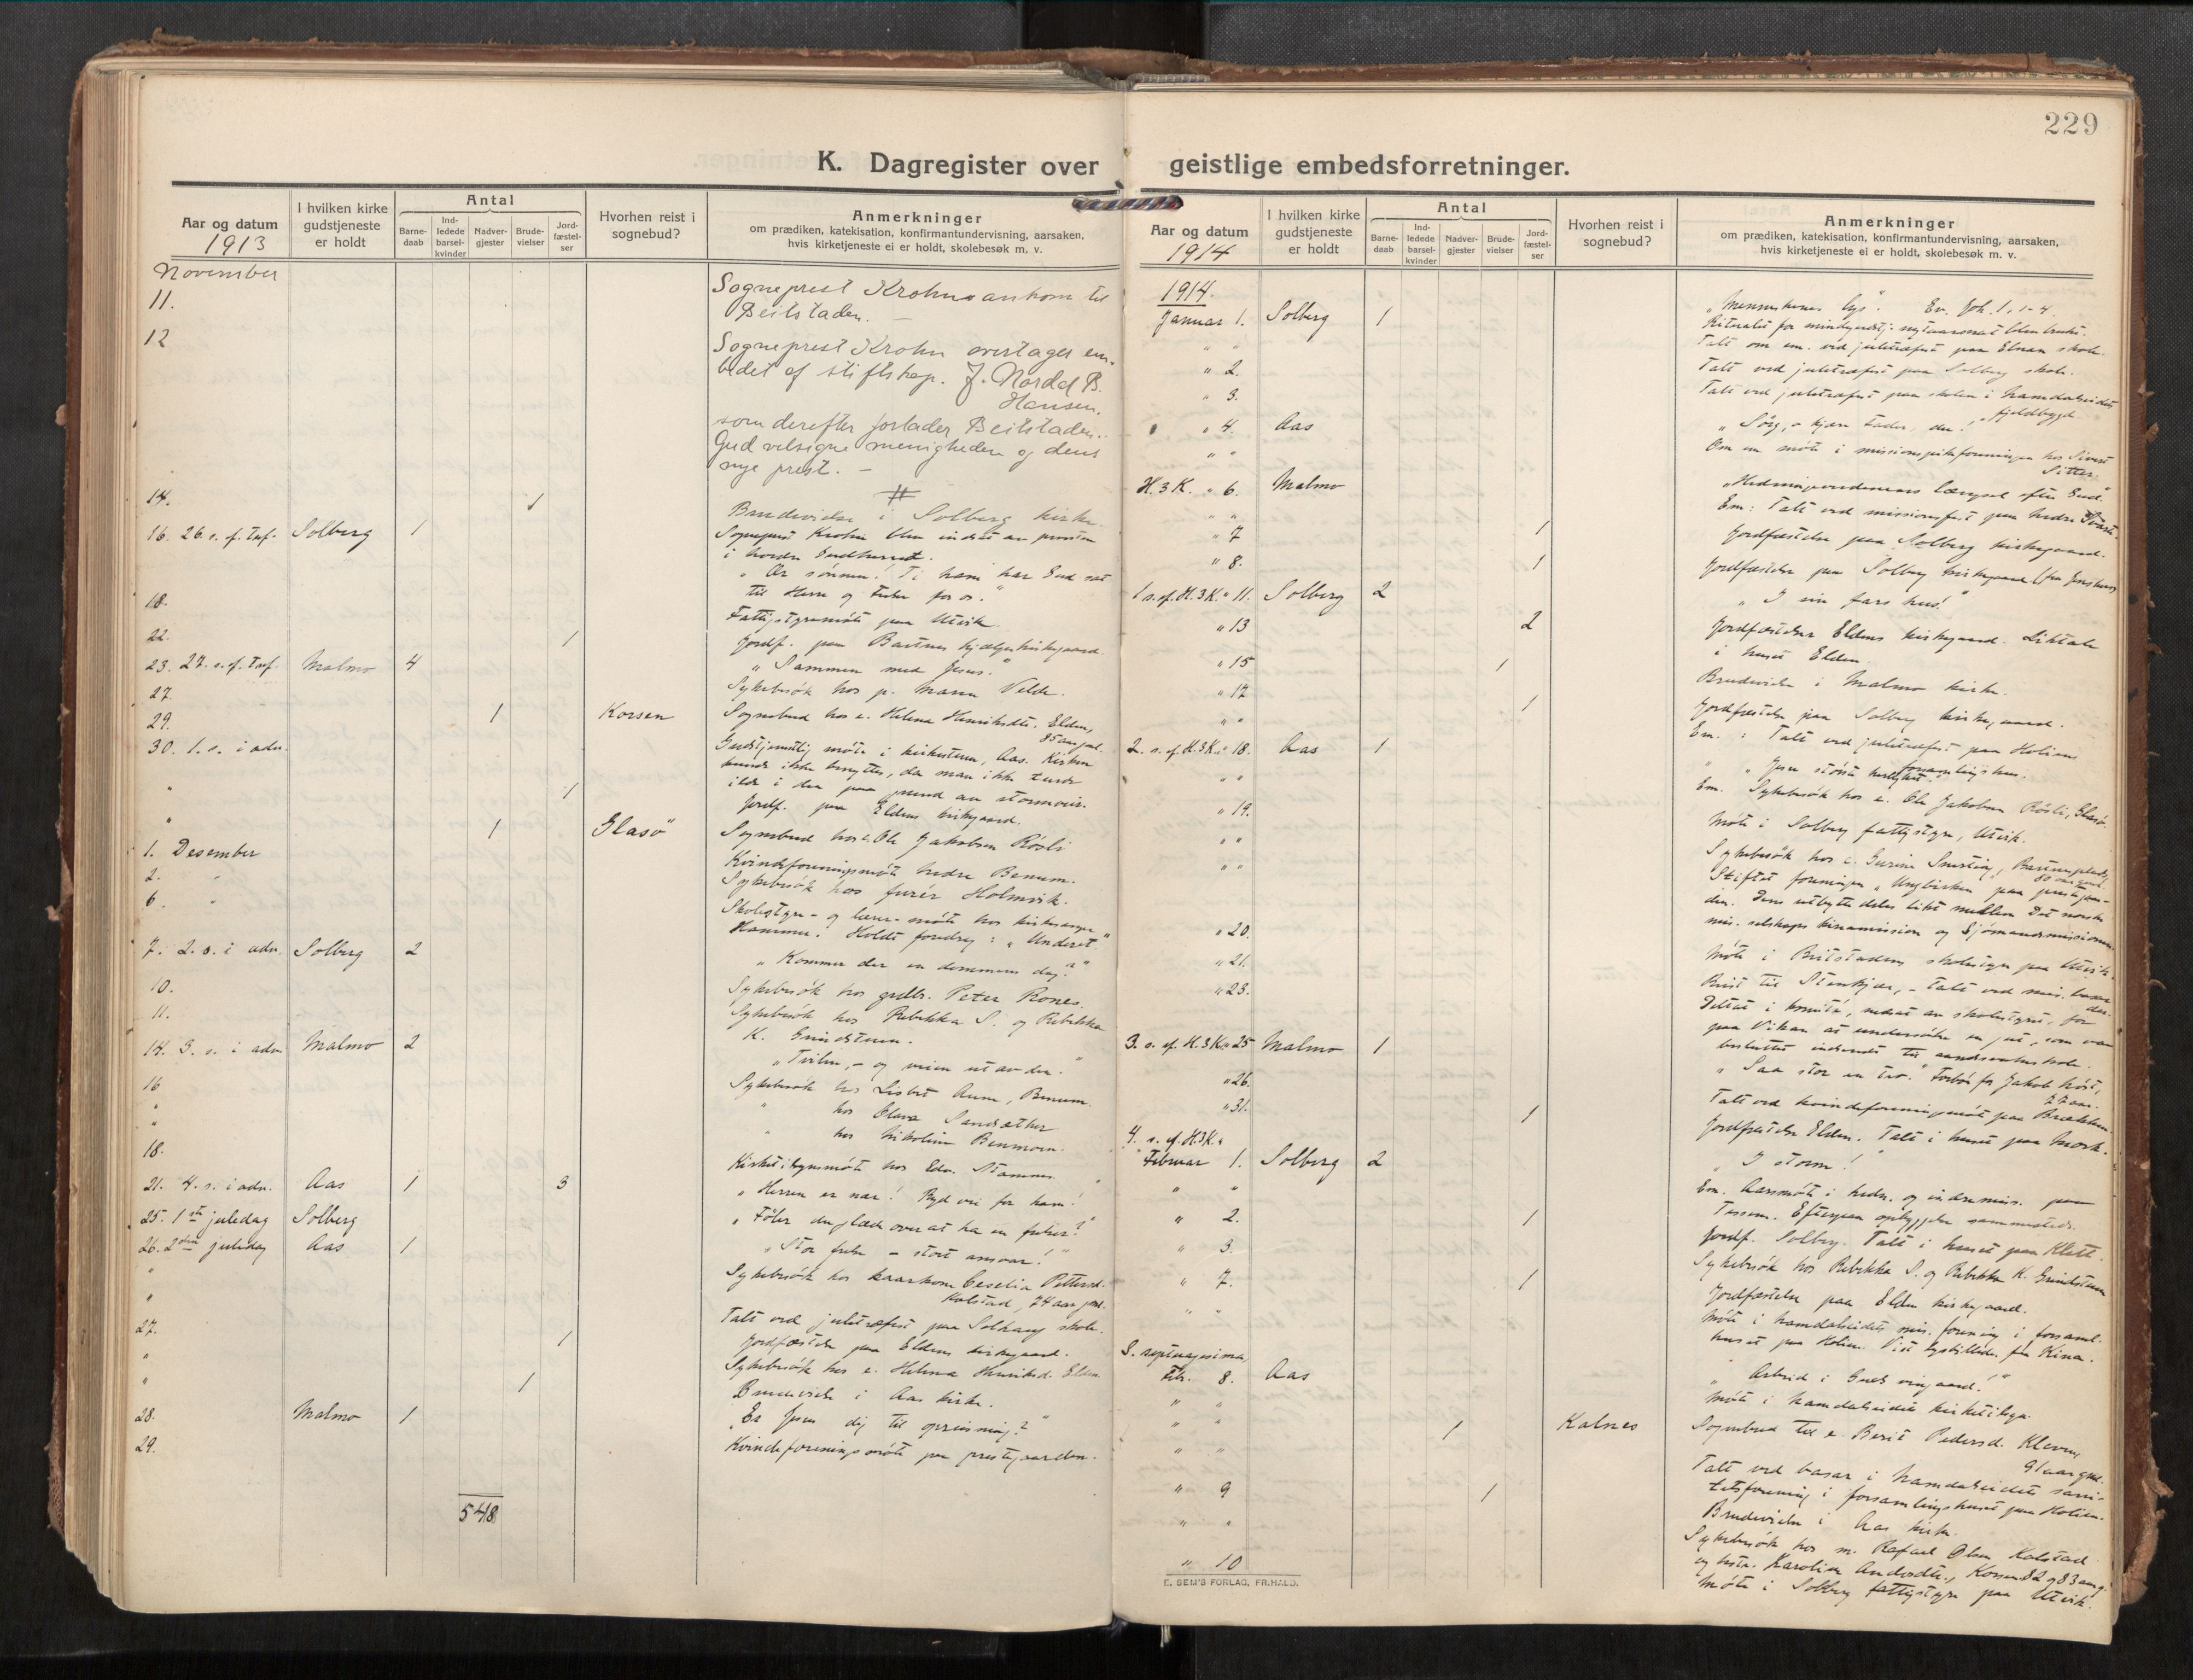 229
K. Dagregister over geistlige embedsforretninger.
Aar og datum
1913
I hvilken kirke gudstjeneste er holdt
Antal
Barne-daab
Ind-ledede barsel-kvinder
Nadver-gjester
Brude-vielser
Jord-fæstel-ser
Hvorhen reist i sognebud?
Anmerkninger
om prædiken, katekisation, konfirmantundervisning, aarsaken,
hvis kirketjeneste ei er holdt, skolebesøk m. v.
November
11. Sogneprest Krohn ankom til
Beitstaden. –
12 Sogneprest Krohn overtager em-
bedet af stiftskap. J. Nordal B.
Hansen,
som derefter forlader Beitstaden.
Gud velsigne menigheden og dens
nye prest. –
14. 1 Brudevielse i Solberg kirke.
16. 26. s. e. tref. Solberg 1 Sogneprest Krohn blev indsat av prosten
i hovdn Gudhurnet.
" Ær sönnen! Ti ham har Gud sat
til Herre og frelser for os."
18. Fattigstyremöte paa Utvik.
22. 1 Jordf. paa Bartnes hjælpekirkegaard.
23. 27. s. ef. tref. Malmo 4 " Sammen med Jesus."
27. Sykebesök hos p. Maren Velde.
29. 1 Korsen Sognebud hos e. Helena Henriksdtr. Elden,
85 aar gml.
30. 1. s. i adv. Gudstjenstlig möte i kirkestuen, Aas. Kirken
kunde ikke benyttes, da man ikke turde
ilde i den paa grund av stormveir.
" 1 Jordf. paa Eldens kirkegaard.
" 1 Glasö Sognebud hos e. Ole Jakobsen Rösli
1. Desember Kvindeforeningsmöte nedre Benum.
2. " Sykebesök hos furér Holmvik.
6. " Skolestyre- og lærer-möte hos kirkesanger
Hammer. Holdt foredrag: " Underet"
7. 2. s. i adv. Solberg 2 " Kommer der en dommens dag?"
10. Sykebesök hos gdbr. Peter Rones.
11. Sykebesök hos Rebekka S. og Rebekka
K. Grindstuen.
14. 3. s. i adv Malmo 2 " Tvilen, – og veien ut av den."
16 Sykebesök hos Lisbet Aune, Benum.
" " hos Clara Sandsæther
" " hos Nikoline Benmoen.
18. Kirketilsynsmöte hos Edv. Stammes
21. 4. s. i adv. Aas 1 3 " Herren er nær! Ryd vei for ham!"
25. 1ste juledag Solberg " Föler du glæde over at ha en frelser?"
26. 2den juledag Aas 1 " Stor frelse – stort ansvar!"
" Sykebesök hos kaarkone Ceselia Pettersd.
Kolstad, 74 aar gml.
" Talt ved juletræfest paa Solhaug skole.
27. 1 Jordfæstelse paa Eldens kirkegaard.
" Sykebesök hos e. Helena Henriksd. Elden
" 1 Brudevielse i Aas kirke.
28. Malmo 1 " Er Jesus dig til opreisning?"
29. Kvindeforeningsmöte paa prestegaarden.
548
Aar og datum
1914
I hvilken kirke gudstjeneste er holdt
Antal
Barne-daab
Ind-ledede barsel-kvinder
Nadver-gjester
Brude-vielser
Jord-fæstel-ser
Hvorhen reist i sognebud?
Anmerkninger
om prædiken, katekisation, konfirmantundervisning, aarsaken,
hvis kirketjeneste ei er holdt, skolebesøk m. v.
1914.
Januar 1. Solberg 1 " Menneskenes lys". Ev. Joh. 1, 1-4.
Ritualet for mindegudstj. nytaarsnat blev brukt.
" " Talt om em. ved juletræfest paa Elnan skole.
" 2. Talt ved juletræfest paa Solberg skole.
" 3. Talt ved juletræfest paa skolen i Namdalseidet
fjeldbygd
" 4. Aas " Sörg, – kjære Fader, du!"
" " Om em. möte i missionspikeforeningen hos Sivert
Sitter.
H. 3 K. " 6. Malmo " Hedningverdenens længsel efter Gud."
" " Em: Talt ved missionsfest paa nedre Tvært.
" 7 1 Jordfæstelse paa Solberg kirkegaard.
" 8. 1 Jordfæstelse paa Solberg kirkegaard
1 s. ef. H. 3 K. " 11. Solberg 2 " I sin fars hus!"
" 13 2 Jordfæstelser Eldens kirkegaard. Liktale
i huset Elden
" 15 1 Brudevielse i Malmo kirke.
" 17 1 Jordfæstelse paa Solberg kirkegaard.
" " Em. : Talt ved juletræfest paa Holiens
forsamlingshus.
2. s. ef. H. 3 K. " 18. Aas 1 " Jesu störste herlighet."
" " Em. Sykebesök hos e. Ole Jakobsen Rösli, Glasö.
" 19. Möte i Solberg fattigstyre, Utvik.
" " Sykebesök hos e. Gurine Snerting, Bartnesplads,
80 aar gml.
" " Stiftet foreningen " Ungbirken" paa prestegaar-
den. Dens utbytte deles likt mellem Det norske
mis. selskaps kinamission og Sjömandsmissionen.
" 20. Möte i Beitstadens skolestyre paa Utvik.
" 21. Reist til Stenkjær, – talt ved mis. basar
der.
" 23. Deltat i komité, nedsat av skolestyret, for
paa Vikan at undersöke en jut, som var
besluttet indsendt til aandssvakeskole.
3. s. ef. H. 3 K. " 25 Malmo 1 " Saa stor en tro." Forbön for Jakob Höst,
27 aar.
" 26. Talt ved kvindeforeningsmöte paa Brækken.
" 31. 1 Jordfæstelse Elden. Talt i huset paa Mork.
4. s. ef. H. 3 K.
Februar 1. Solberg 2 " I storm!"
" " Em. Aarsmöte i hedn. og indremis. paa
Tessem. Efterpaa opbyggelse sammesteds.
" 2. 1 Jordf. Solberg. Talt i huset paa Klett.
" 3. Sykebesök hos Rebekka S. og Rebekka K. Grindstuen
" 7. 1 Jordfæstelse paa Elden kirkegaard.
" " Möte i Namdalseidets mis. forening i forsaml.-
huset paa Holien. Vist lysbilleder fra Kina.
S. septuagesima,
Feb. 8. Aas " Arbeid i Guds vingaard!"
" " Möte i Namdalseidets kirketilsyn
" " 1 Kalnes Sognebud til e. Berit Pedersd. Kleven,
91 aar gml.
" " Talt ved basar i Namdalseidets sani-
tetsforening i forsamlingshuset paa Holien.
" 9 1 Brudevielse i Aas kirke.
" " Sykebesök hos m. Rafael Olsen Kalstad
og hstr. Karoline Andersdtr., Korsen 82 og 83 aar g.
" 10 Möte i Solberg fattigstyre paa Utvik.
E. SEM'S FORLAG, FR.HALD.